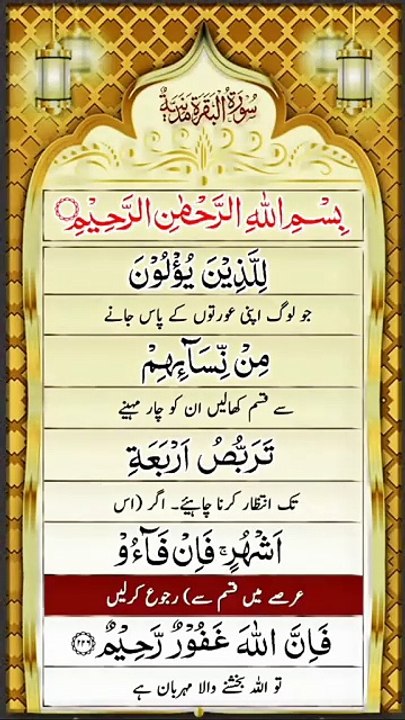 سُوْرَةُ الْبَقَرَةِ مَدَنِيَّةٌ
بِسْمِ اللّٰهِ الرَّحْمٰنِ الرَّحِيْمِ
لِلَّذِيْنَ يُؤْلُوْنَ
جو لوگ اپنی عورتوں کے پاس جانے
مِنْ نِّسَآئِهِمْ
سے قسم کھالیں ان کو چار مہینے
تَرَبُّصُ اَرْبَعَةِ
تک انتظار کرنا چاہیئے۔ اگر (اس
اَشْهُرٍ ۚ فَاِنْ فَآءُوْ
عرصے میں قسم سے) رجوع کرلیں
فَاِنَّ اللّٰهَ غَفُوْرٌ رَّحِيْمٌ ﴿۲۲۶﴾
تو اللہ بخشنے والا مہربان ہے